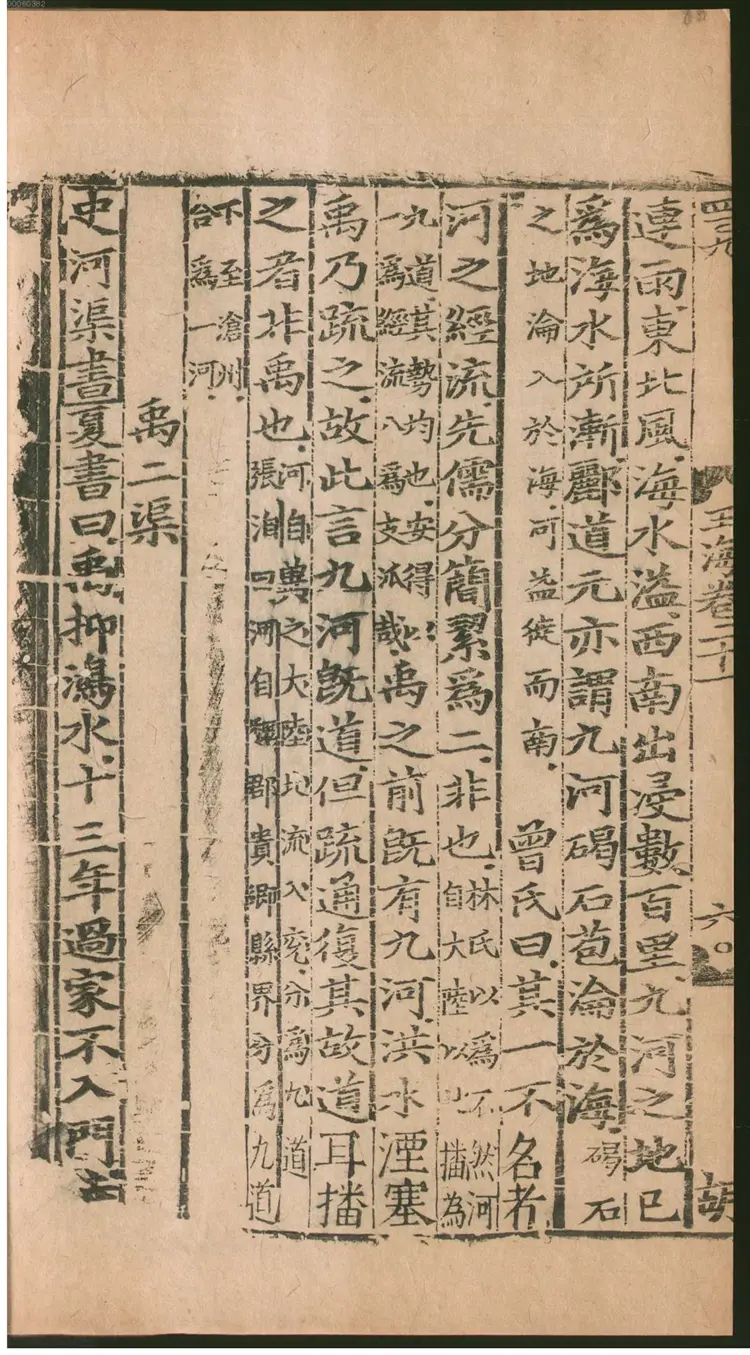 四百九 玉海卷二十一 六〇 胡
連雨東北風海水溢西南出浸數百里九河之地已
爲海水所漸酈道元亦謂九河碣石苞淪於海碣石
之地淪入於海可益徙而南 曾氏曰其一不名者
河之經流先儒分簡絜爲二非也林氏以爲不然河
自大陸以北播為
九道其勢均也安得以
一爲經流八爲支派哉禹之前旣有九河洪水湮塞
禹乃疏之故此言九河旣道但疏通復其故道耳播
之者非禹也河自冀之大陸北流入兖分爲九道
張洎曰河自魏郡貴鄉縣界分爲九道
下至滄州
合爲一河
禹二渠
史河渠書夏書曰禹抑鴻水十三年過家不入門